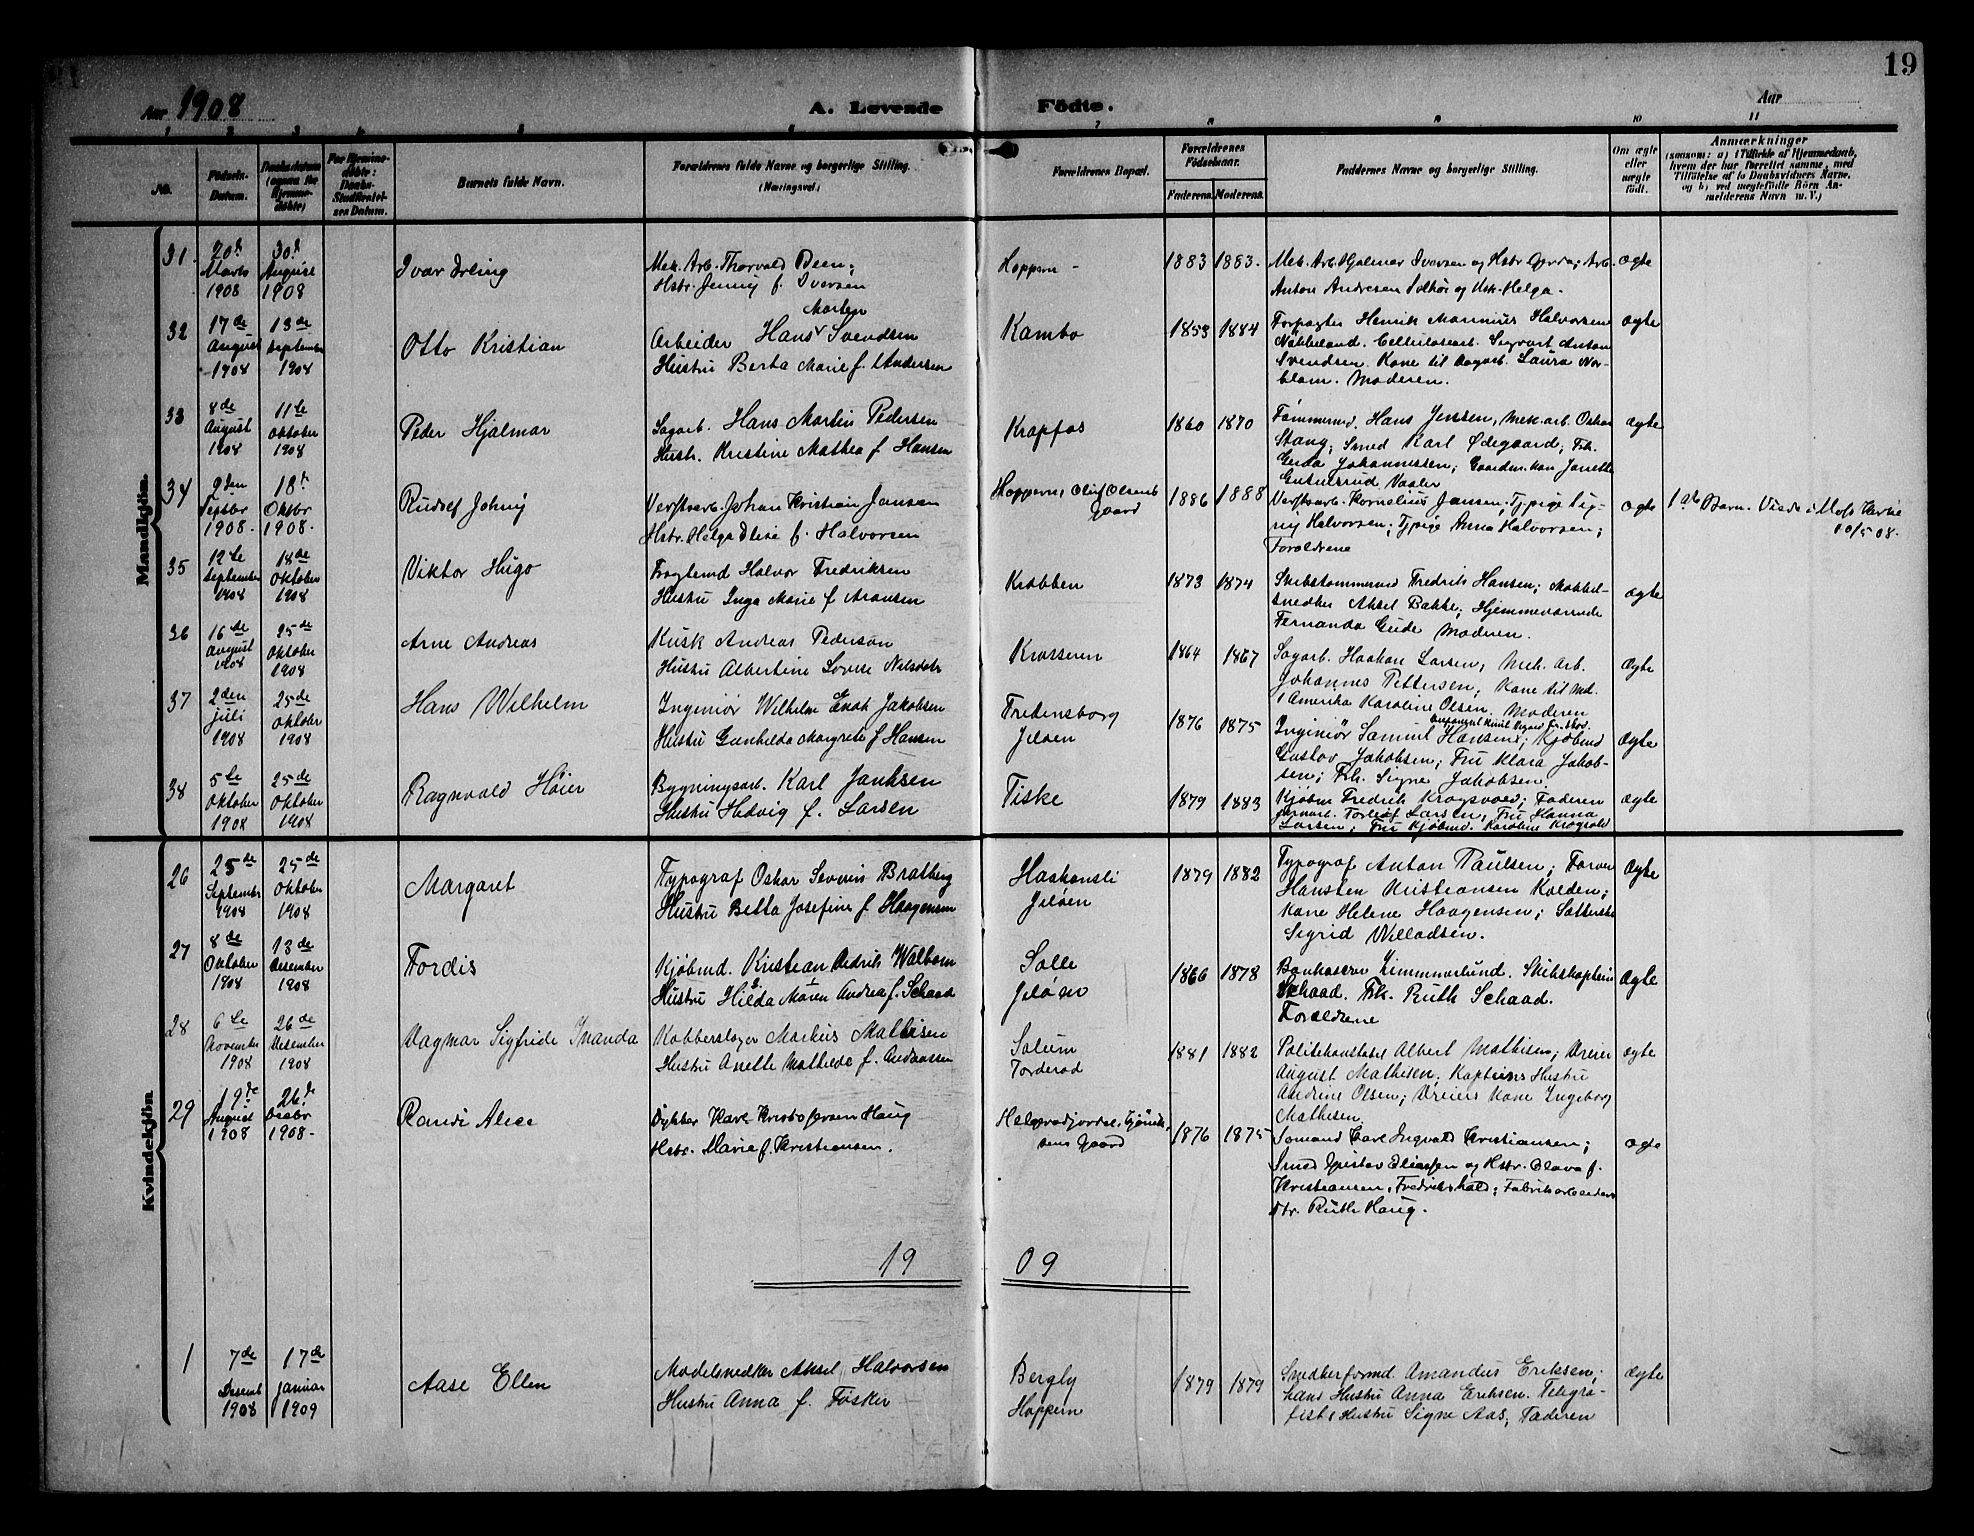 19
Aar 1908
A. Levende
Födte.
Aar
1 2 3 4 5 6 7 8 9 10 11
No.
Födsels-
Datum.
Daabsdatum
(ogsaa for
Hjemme-
döbte)
For Hjemme-
döbte:
Daabs-
Stadfæstel-
ses Datum.
Barnets fulde Navn.
Forældrenes fulde Navne og borgerlige Stilling.
(Næringsvei)
Forældrenes Bopæl.
Forældrenes
Födselsaar.
Faderens. Moderens.
Faddernes Navne og borgerlige Stilling.
Om ægte
eller
uægte
födt.
Anmærkninger
(saasom: a) i Tilfælde af Hjemmedaab,
hvem der har forrettet samme, med
Tilföielse af to Daabsvidners Navne,
og b) ved uægtefödte Börn An-
melderens Navn m. V.)
Mandkjön.
31.
20de
Marts
1908
30te
August
1908
Ivar Erling
Mek. Arb. Thorvald Been,
Hstr. Jenny f. Iversen
Hoppern
1883 1883.
Mek. Arb. Hjalmar Iversen og Hstr Gerda; Arb.
Anton Andresen Solhøi og Hstr. Helga.
ægte
32
17de
August
1908
13de
September
1908
Otto Kristian
Morten
Arbeider Hans Svendsen
Hustru Berta Marie f. Andersen
Kambo
1853 1884
Forpagter Henrik Marinius Halvorsen
Nøkkeland. Cellulosearb. Sigvart Anton
Svendsen. Kone til Dagarb. Laura Nor-
blom. Moderen.
ægte
33
8de
August
1908
11te
Oktober
1908
Peder Hjalmar
Sagarb. Hans Martin Pedersen
Hustr. Kristine Mathea f. Hansen
Krapfos
1860 1870
Tømmermd. Hans Jensen, Mek. arb. Oskar
Stang; Smed Karl Ødegaard; Frk.
Gerda Johannessen; Gaardm. kone Janette
Gutulsrud Vaaler
ægte
34
9den
Septbr
1908.
18de
Oktbr
1908.
Rudolf Johny
Verftsarb. Johan Kristian Jansen
Hstr. Helga Elise f. Halvorsen
Hoppern, Oluf Olsens
Gaard
1886 1888
Verftsarb. Kornelius Jansen; Tjpige Sig-
ny Halvorsen; Tjpige Anna Halvorsen;
Forældrene
ægte
1ste Barn. Viede i Moss Kirke
10/5 08.
35
12te
September
1908
18de
Oktober
1908
Viktor Hugo
Fragtemd Halvor Fredriksen
Hustru Inga Marie f. Aronsen
Krabben
1873 1874
Skibstømmermd Fredrik Hansen; Møbbel-
snedker Aksel Bakke; Hjemmeværende
Fernanda Gude Moderen.
ægte
36
16de
August
1908
25de
Oktober
1908
Arne Andreas
Kusk Andreas Pederson
Hustru Albertine Lovise Nilsdatr
Krosseren
1864 1867
Sagarb. Haakon Larsen, Mek. arb.
Johannes Pettersen, Kone til Md.
i Amerika Karoline Olsen. Moderen
ægte
37
2den
Juli
1908
25de
Oktober
1908
Hans Wilhelm
Ingeniør Wilhelm Enok Jakobsen
Hustru Gunhilda Margrete f. Hansen
Fredensborg
Jeløen
1876 1875
Ingeniør Samuel Hansen; Kjøbmd
Gustav Jakobsen; Fru Klara Jakob-
sen; Frk. Signe Jakobsen
ægte
38
5te
Oktober
1908
25de
Oktober
1908
Ragnvald Høier
Bygningsarb. Karl Janksen
Hustru Hedvig f. Larsen
Tiske
1879 1883
Kjøbm Fredrik Kragsvold; Faderen
Jernarb. Torleif Larsen, Fru Hanna
Larsen; Fru Kjøbmd. Karoline Kragsvold
ægte
Kvindekjön
26
25de
September
1908
25de
Oktober
1908
Margaret
Typograf Oskar Severin Bratberg
Hustru Betta Josefine f. Haagensen
Haakonsli
Jeløen
1879 1882
Typograf Anton Paulsen; Farver
Hansten Kristiansen Kolden;
Kone Helene Haagensen; Sætterske
Sigrid Willadsen.
ægte
27
8de
Oktober
1908
13de
Desember
1908
Tordis
Kjøbmd. Kristian Didrik Walbom
Hustru Hilda Maren Andrea f. Schaad
Solle
Jeløen
1866 1878
Bankasserer Zimmerlund. Skibskaptein
Schaad. Frk. Ruth Schaad.
Forældrene
ægte
28
6te
November
1908
26de
Desember
1908
Dagmar Sigfride Inanda
Kobberslager Markus Mathisen
Hustru Anette Mathilde f. Andreassen
Solum
Torderød
1881 1882
Politikonstabel Albert Mathisen; Dreier
August Mathisen. Kapteins Hustru
Andrine Olsen; Dreiers Kone Ingeborg
Mathisen
ægte
29
19de
August
1908
26de
Desbr
1908.
Randi Alice
Dykker Karl Kristofersen Haug
Hstr. Marie f. Kristiansen.
1876 1875
Sømand Carl Ingvald Kristiansen;
Smed Gustav Eliassen og Hstr. Olava f.
Kristiansen, Fredrikshald; Fabrikarbeiders
Hstr. Ruth Haug.
ægte
19 09
1
7de
Desemb
1908
17de
Januar
1909
Aase Ellen
Modelsnedker Aksel Halvorsen
Hustru Anna f. Føsker
Bergly
Hoppern
1879 1879
Snedkerformd Amandus Eriksen;
hans Hustru Anna Eriksen. Telegra-
fist, Hustru Signe Aas, Faderen
ægte